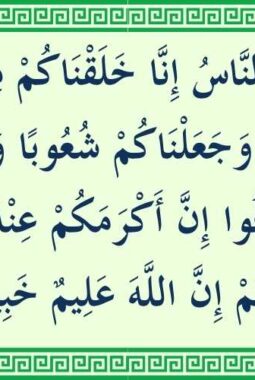 لنَّاسُ إِنَّا خَلَقْنَاكُمْ
وَجَعَلْنَاكُمْ شُعُوبًا وَ
وا إِنَّ أَكْرَمَكُمْ عِنْ
مْ إِنَّ اللَّهَ عَلِيمٌ خَبِي